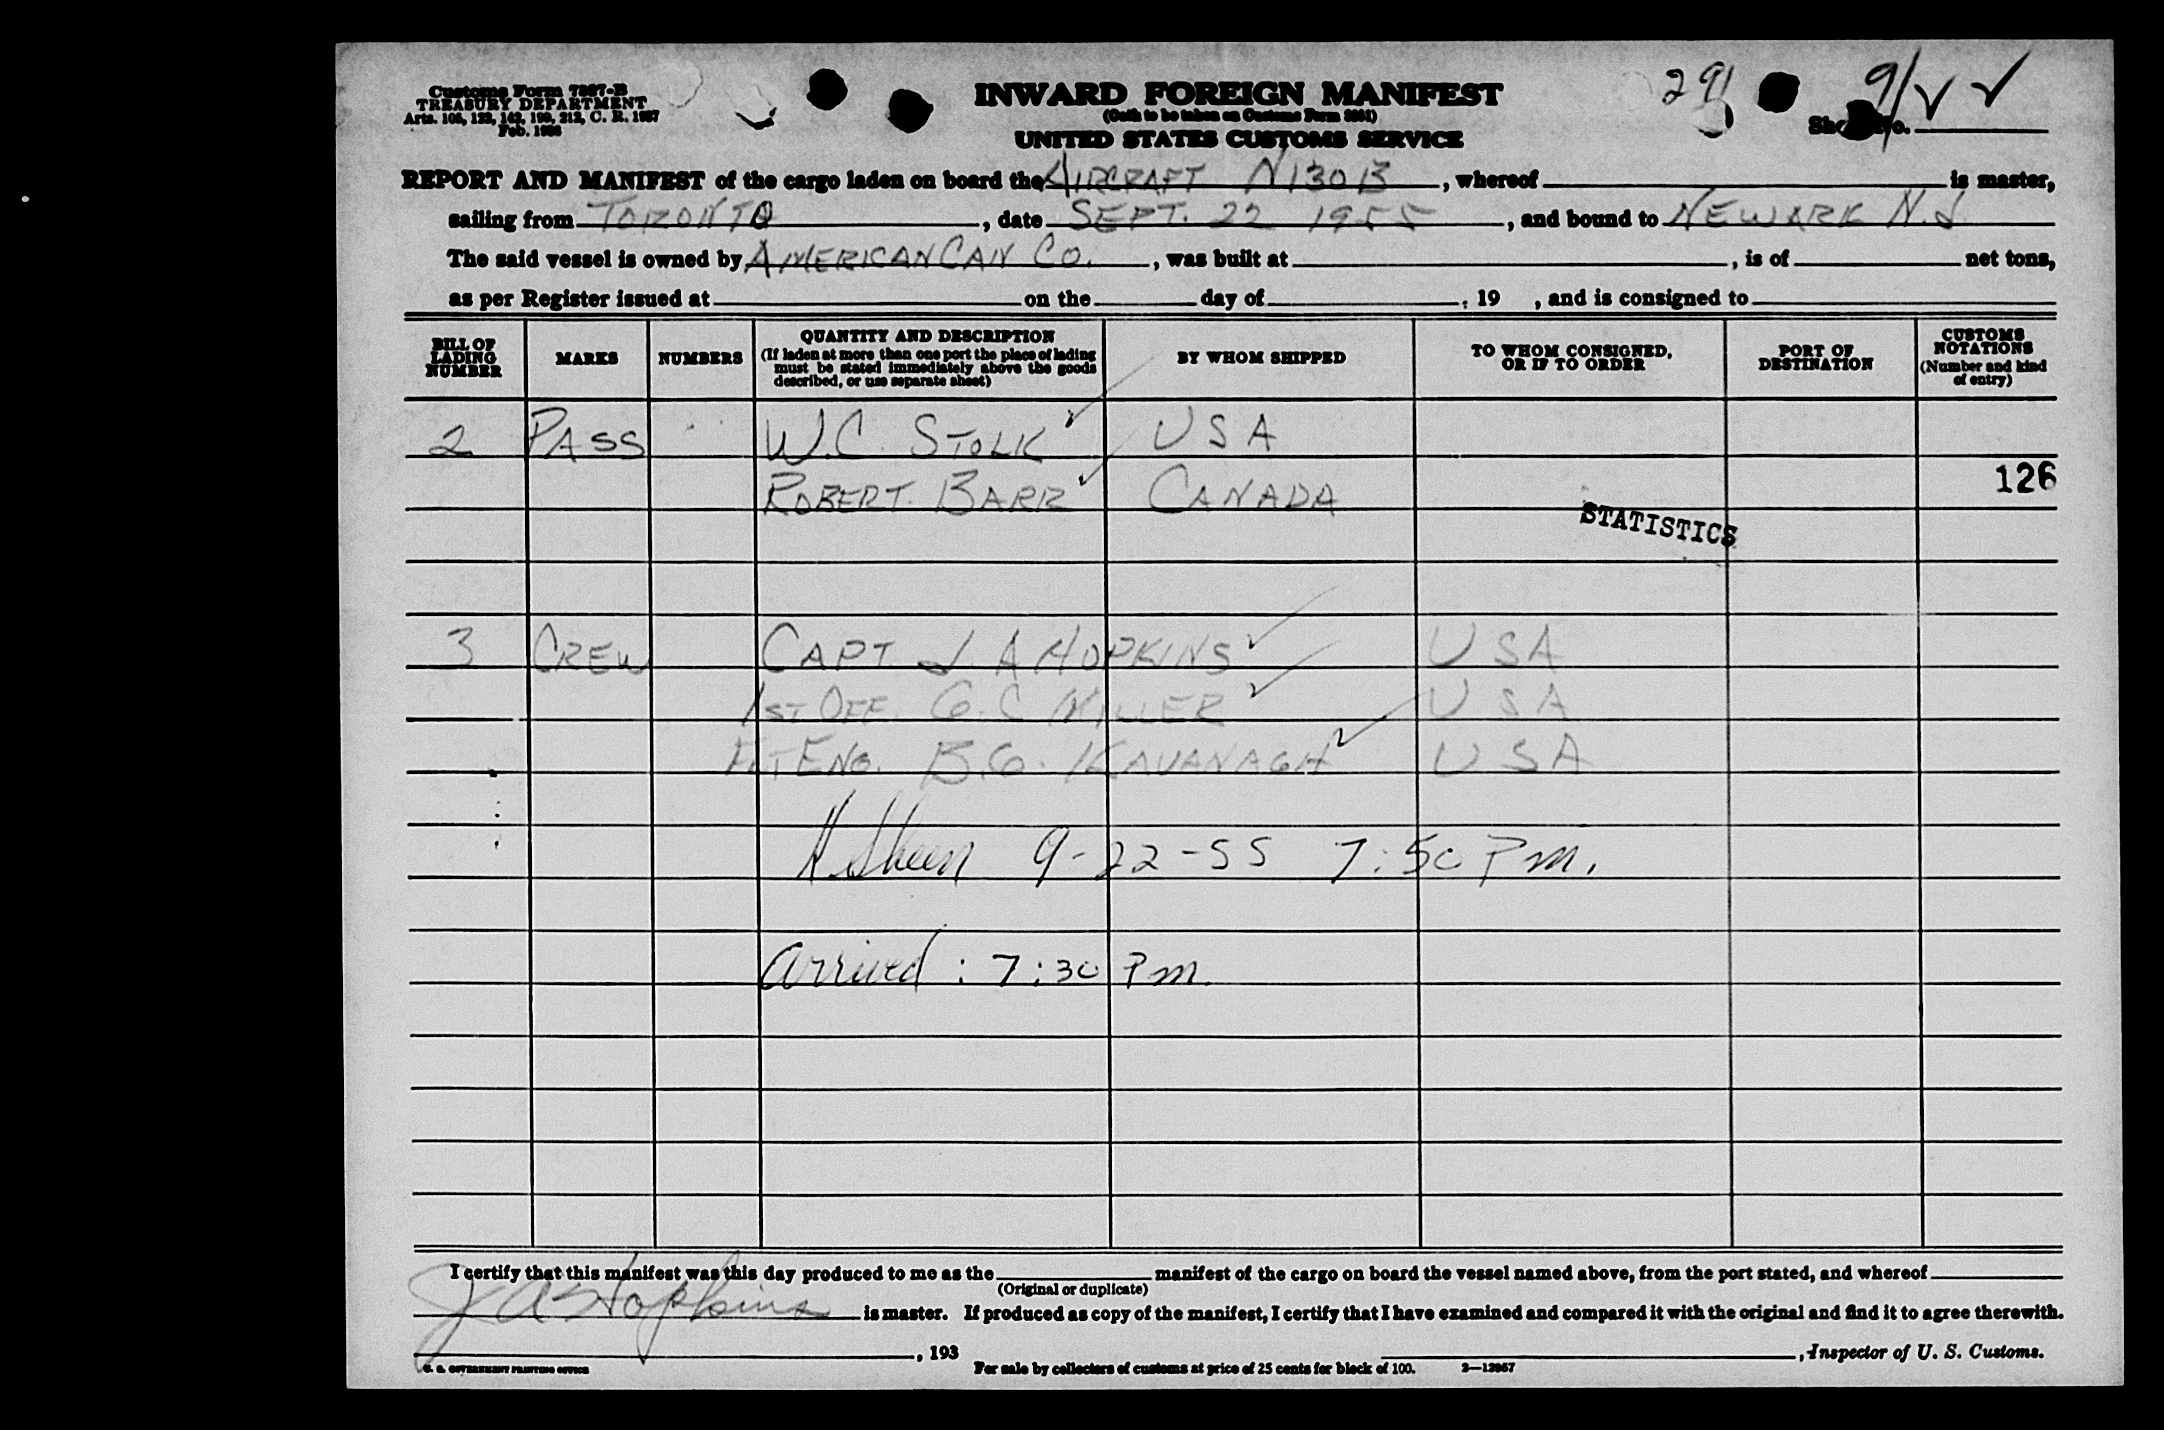 Customs Form 7527-B
TREASURY DEPARTMENT
Feb. 1938
INWARD FOREIGN MANIFEST
UNITED STATES CUSTOMS SERVICE
29
9/
REPORT AND MANIFEST of the cargo laden on board the AIRCRAFT N130B, whereof is master,
sailing from TORONTO, date SEPT. 22 1955, and bound to NEWARK N.J
The said vessel is owned by AMERICAN CAN CO., was built at, is of net tons,
as per Register issued at on the day of, 19, and is consigned to
BILL OF LADING NUMBER
MARKS
NUMBERS
QUANTITY AND DESCRIPTION
(If laden at more than one port the place of lading
must be stated immediately above the goods
described, or use separate sheet)
BY WHOM SHIPPED
TO WHOM CONSIGNED,
OR IF TO ORDER
PORT OF
DESTINATION
CUSTOMS
NOTATIONS
(Number and kind
of entry)
2 PASS W.C. STOLK USA
126
ROBERT BARR CANADA
STATISTICS
3 CREW CAPT J A HOPKINS USA
1ST OFF. G.C MILLER USA
FLT ENG. B.G. KAVANAGH USA
9-22-55 7:50 Pm.
arrived : 7:30 Pm.
I certify that this manifest was this day produced to me as the manifest of the cargo on board the vessel named above, from the port stated, and whereof
(Original or duplicate)
J A Hopkins is master. If produced as copy of the manifest, I certify that I have examined and compared it with the original and find it to agree therewith.
, 193
, Inspector of U. S. Customs.
U. S. GOVERNMENT PRINTING OFFICE
For sale by collectors of customs at price of 25 cents for block of 100.